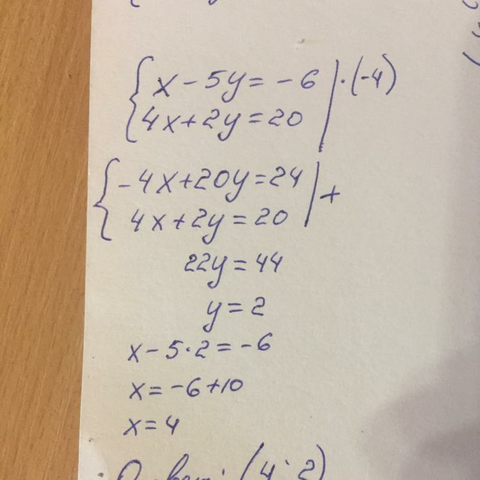 x - 5y = -6 | ·(-4)
4x + 2y = 20
-4x + 20y = 24 | +
4x + 2y = 20
22y = 44
y = 2
x - 5·2 = -6
x = -6 + 10
x = 4
Ответ: (4; 2)